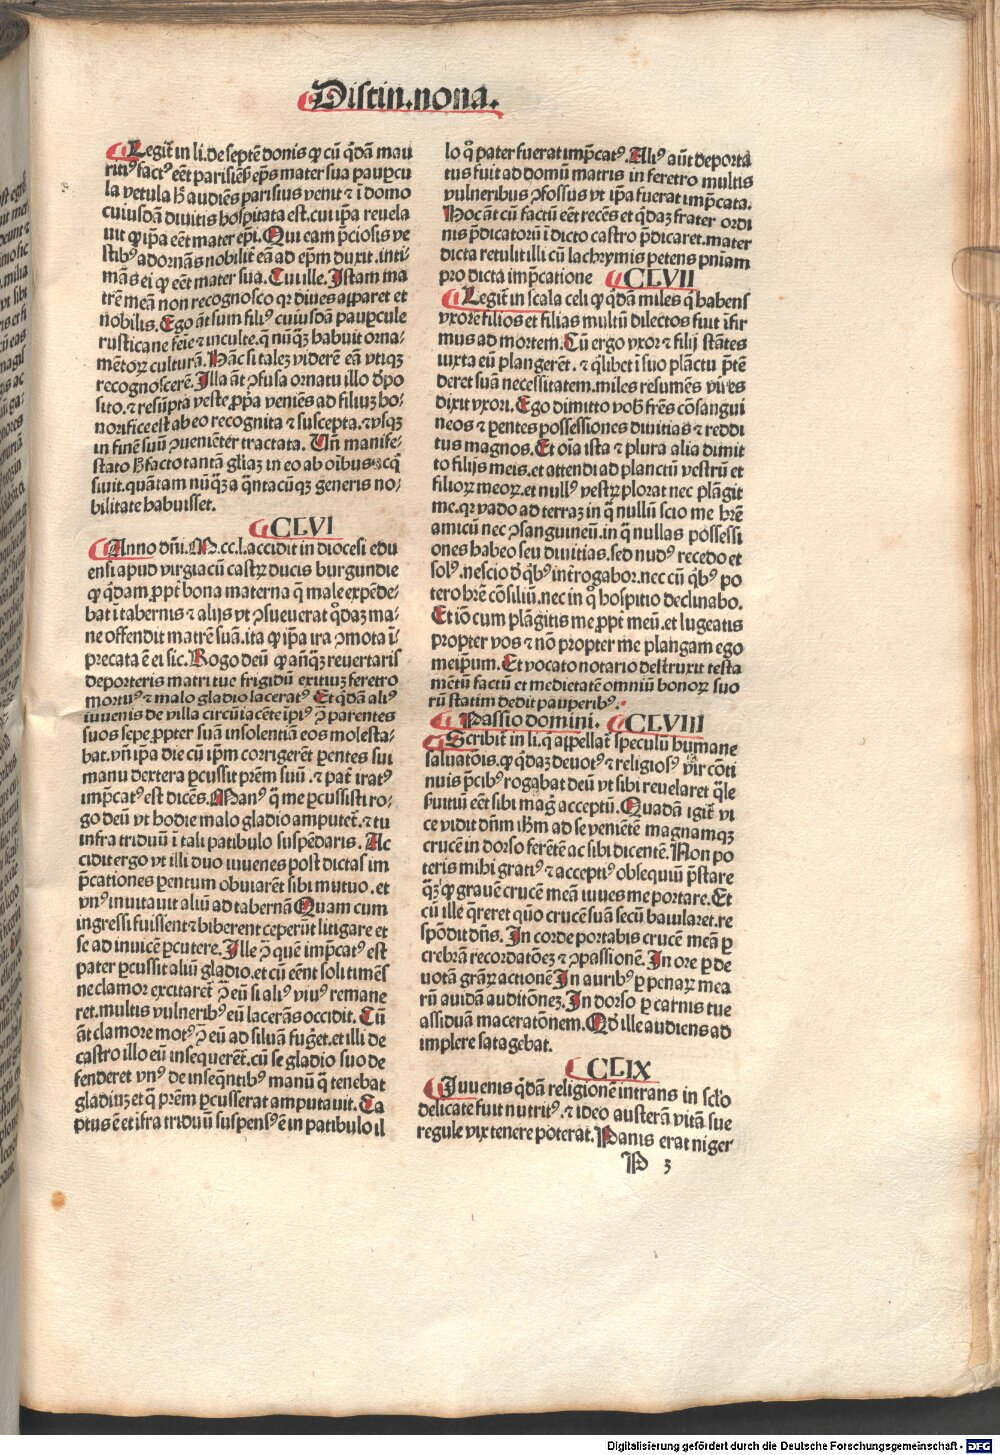 Distin.nona.
Legit̃ in li.de septē donis ꝙ cū q̄dā mau
ritiꝰ factꝰ eēt parisieñ eps̄ mater sua paupcu
la vetula h̄ audiēs parisius venit ⁊ ī domo
cuiusdā divitis hospitata est.cui ip̄a revela
uit ꝙ ip̄a eēt mater ep̄i.Qui eam p̄ciosis ve
stibꝰ adornās nobilit̃ eā ad ep̄m duxit.inti⸗
mās ei ꝙ eēt mater sua.Cui ille.Istam ma
trē meā non recognosco qꝛ diues apparet et
nobilis.Ego āt sum filiꝰ cuiusdā pauꝑcule
rusticane feīe ⁊ inculte.q nūqꝫ habuit orna⸗
mētoꝝ culturā.Hāc si talez viderē eā vtiqꝫ
recognoscerē.Illa āt ꝯfusa ornatu illo d̓po
sito.⁊ resūpta veste ꝓp̄a veniēs ad filiuꝫ ho⸗
norifice est ab eo recognita ⁊ suscepta.⁊ vsqꝫ
in finē suū ꝯueniēter tractata. Vn̄ manife⸗
stato h̄ facto tantā gl̄iaꝫ in eo ab oībus ꝯcq̄
siuit.quātam nūq̄ꝫ a q̄ntacūqꝫ generis no⸗
bilitate habuisset.
CLVI
Anno dn̄i.M.cc.l.accidit in diocesi edu
ensi apud virgiacū castꝝ ducis burgundie
ꝙ q̄dam.ꝓpt̃ bona materna q̄ male expēde⸗
bat ī tabernis ⁊ alijs vt ꝯsueuerat q̄daꝫ ma⸗
ne offendit matrē suā.ita ꝙ ip̄a ira ꝯmota ī⸗
precata ē ei sic.Rogo deū ꝙ anq̄ꝫ revertaris
deporteris matri tue frigidū exitiuꝫ feretro
mortuꝰ ⁊ malo gladio laceratꝰ Et q̄dā aliꝰ
iuuenis de villa circūiacēte ip̄iꝰ ꝯ̄ parentes
suos sepe.ꝓpter suā insolentiā eos molesta⸗
bat.vn̄ ip̄a die cū ip̄m corrigerēt ꝑentes sui
manu dextera ꝑcussit prēm suū.⁊ pat̃ iratꝰ
imp̄catꝰ est dicēs.Manꝰ q̄ me ꝑcussisti ro⸗
go deū vt hodie malo gladio amputet̃.⁊ tu
infra triduū ī tali patibulo suspēdaris. Ac
cidit ergo vt illi duo iuuenes post dictas im
p̄cationes ꝑentum obuiarēt sibi mutuo.et
vnꝰ inuitauit aliū ad tabernā Quam cum
ingressi fuissent ⁊ biberent ceperūt litigare et
se ad inuicē ꝑcutere.Ille ꝯ̄ quē imp̄catꝰ est
pater ꝑcussit aliū gladio.et cū eēnt soli timēs
ne clamor excitaret̃ ꝯ̄ eū si aliꝰ viuꝰ remane
ret.multis vulneribꝰ eū lacerās occidit. Cū
āt clamore motꝰ ꝯ̄ eū ad siluā fug̓et.et illi de
castro illo eū insequerēt̃.cū se gladio suo de
fenderet vnꝰ de inseq̄ntibꝰ manū q̄ tenebat
gladiuꝫ et q̄ prēm ꝑcusserat amputauit. Ca
ptus ē et īfra triduū suspensꝰ ē in patibulo il
lo q̄ pater fuerat imp̄catꝰ.Aliꝰ aūt deporta
tus fuit ad domū matris in feretro multis
vulneribus ꝯfossus vt ip̄a fuerat imp̄cata.
Hoc āt cū factū eēt recēs et q̄daꝫ frater ordi
nis p̄dicatorū ī dicto castro p̄dicaret.mater
dicta retulit illi cū lachrymis petens pn̄iam
pro dicta imp̄catione
CLVII
Legit̃ in scala celi ꝙ q̄dā miles q̄ habens
vxore filios et filias multū dilectos fuit īfir
mus ad mortem.Cū ergo vxor ⁊ filij stātes
iuxta eū plangerēt.⁊ q̄libet ī suo plāctu p̄tē
deret suā necessitatem.miles resumēs vires
dixit vxori.Ego dimitto vob̓ frēs cōsangui
neos ⁊ ꝑentes possessiones divitias ⁊ reddi
tus magnos.Et oīa ista ⁊ plura alia dimit
to filijs meis.et attendi ad planctū vestrū et
filioꝝ meoꝝ.et nullꝰ vestꝝ plorat nec plāgit
me.qꝛ vado ad terraꝫ in q̄ nullū scio me hr̄e
amicū nec ꝯsanguineū.in q̄ nullas possessi
ones habeo seu divitias.sed nudꝰ recedo et
solꝰ.nescio d̓ q̄bꝰ int̓rogaboꝛ.nec cū q̄bꝰ po
tero hr̄e cōsiliū.nec in q̄ hospitio declinabo.
Et iō cum plāgitis me.ꝓpt̃ meū.et lugeatis
propter vos ⁊ nō propter me plangam ego
meip̄um. Et vocato notario destruxit testa
mētū factū et medietatē omniū bonoꝝ suo
rū statim dedit pauperibꝰ.
Passio domini.
CLVIII
Scribit̃ in li.q appellat̃ speculū humane
saluatōis.ꝙ q̄daꝫ devotꝰ ⁊ religiosꝰ vir cōti
nuis p̄cibꝰ rogabat deū vt sibi revelaret q̄le
s̓uitiū eēt sibi mag̓ acceptū.Quadā igit̃ vi
ce vidit dn̄m ih̄m ad se veniētē magnamqꝫ
crucē in dorso ferētē ac sibi dicentē.Non po
teris mihi gratiꝰ ⁊ acceptiꝰ obsequiū p̄stare
q̄ꝫ ꝙ grauē crucē meā iuues me portare. Et
cū ille q̄reret quō crucē suā secū baiularet.re
spōdit dn̄s. In corde portabis crucē meā ꝑ
crebrā recordatōeꝫ ⁊ ꝯpassionē.In ore ꝑ de
uotā grāꝝ actionē In auribꝰ ꝑ penaꝝ mea
rū auidā auditōneꝫ.In dorso ꝑ carnis tue
assiduam maceratōnem.Qd̓ ille audiens ad
implere satagebat.
CLIX
Iuuenis q̄dā religionē intrans in sclo
delicate fuit nutritꝰ.⁊ ideo austerā vitā sue
regule vix tenere poterat.Panis erat niger
P 3
Digitalisierung gefördert durch die Deutsche Forschungsgemeinschaft - DFG